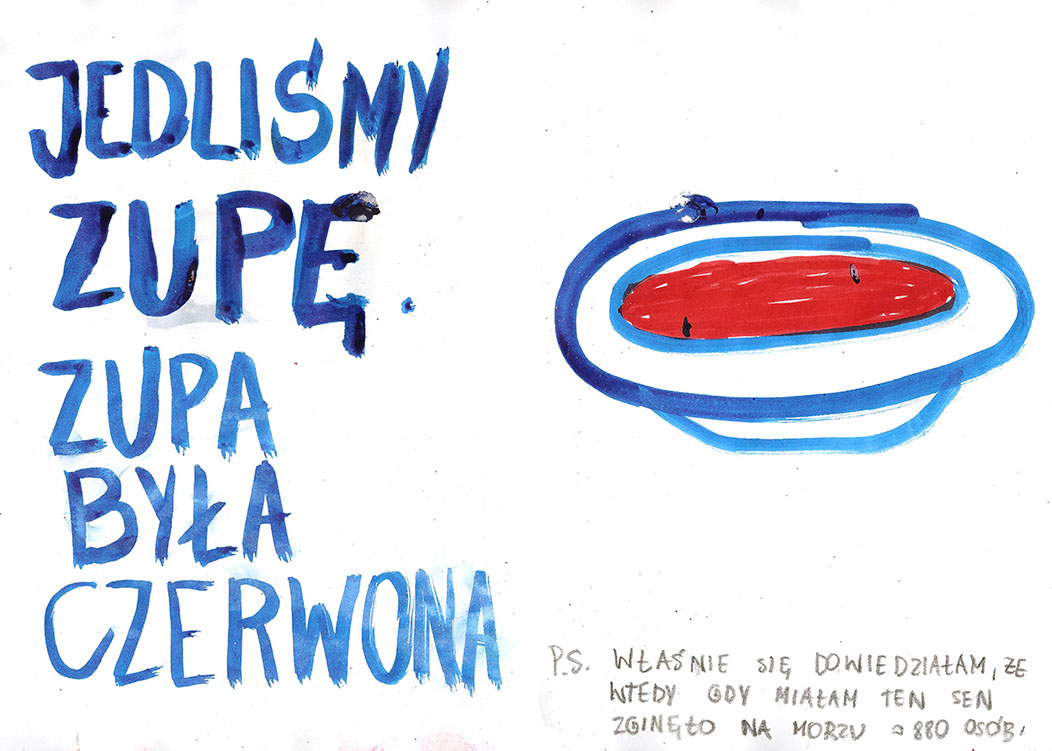 JEDLIŚMY
ZUPĘ.
ZUPA
BYŁA
CZERWONA
P.S. WŁAŚNIE SIĘ DOWIEDZIAŁAM, ŻE
WTEDY GDY MIAŁAM TEN SEN
ZGINĘŁO NA MORZU 880 OSÓB.